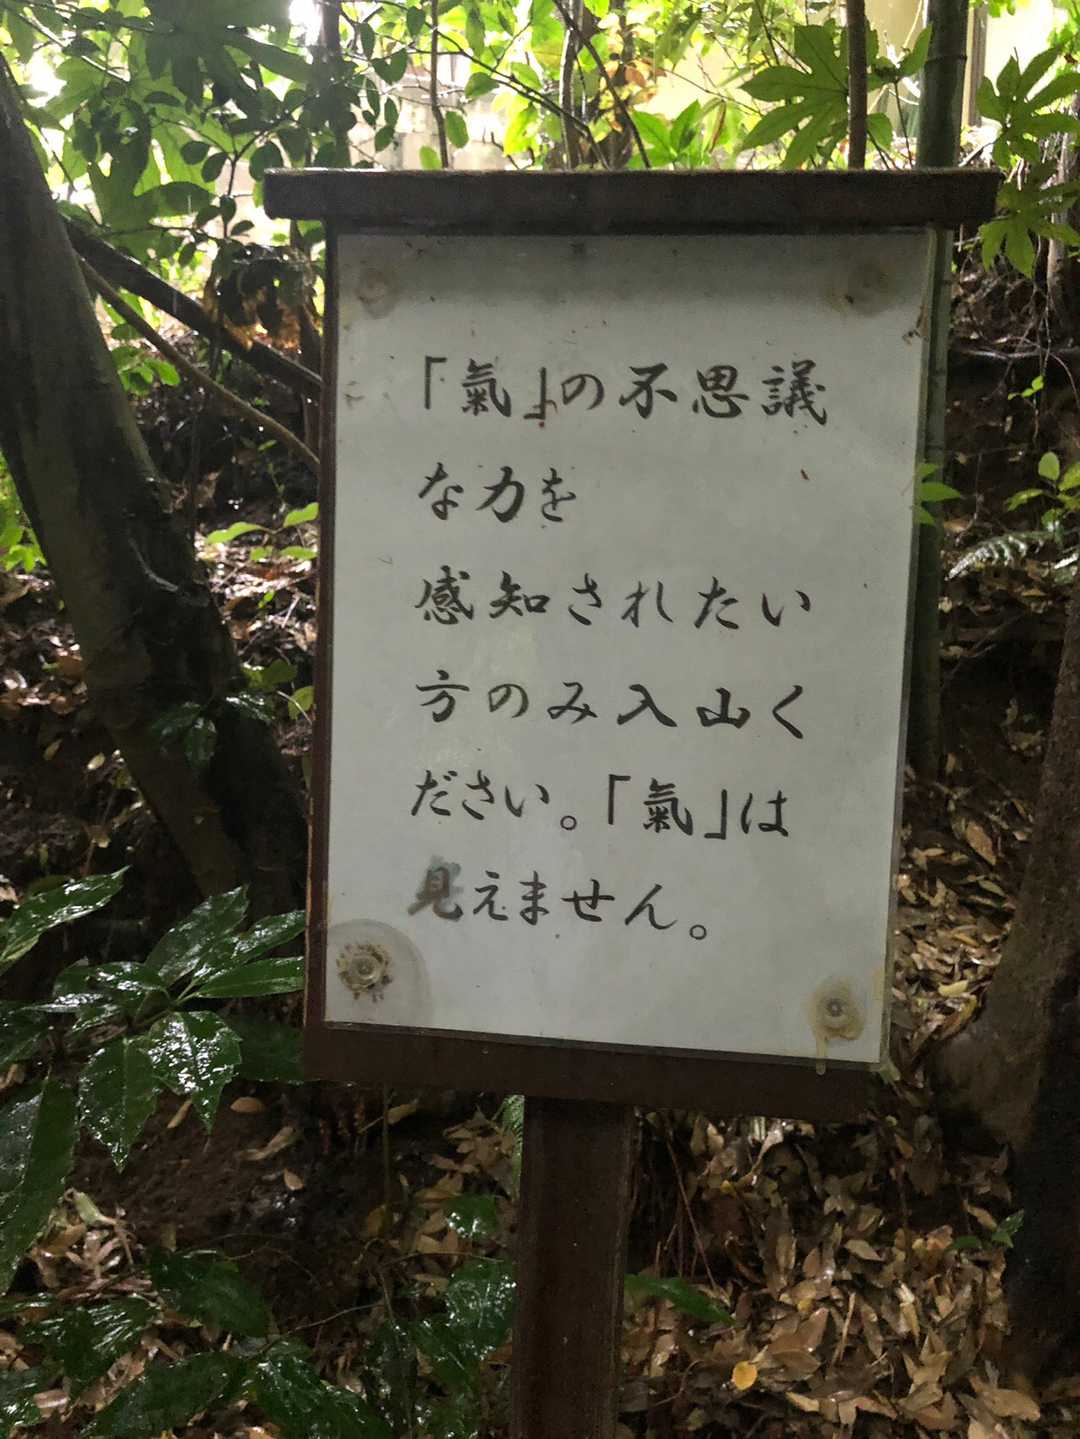 「氣」の不思議
な力を
感知されたい
方のみ入山く
ださい。「氣」は
見えません。